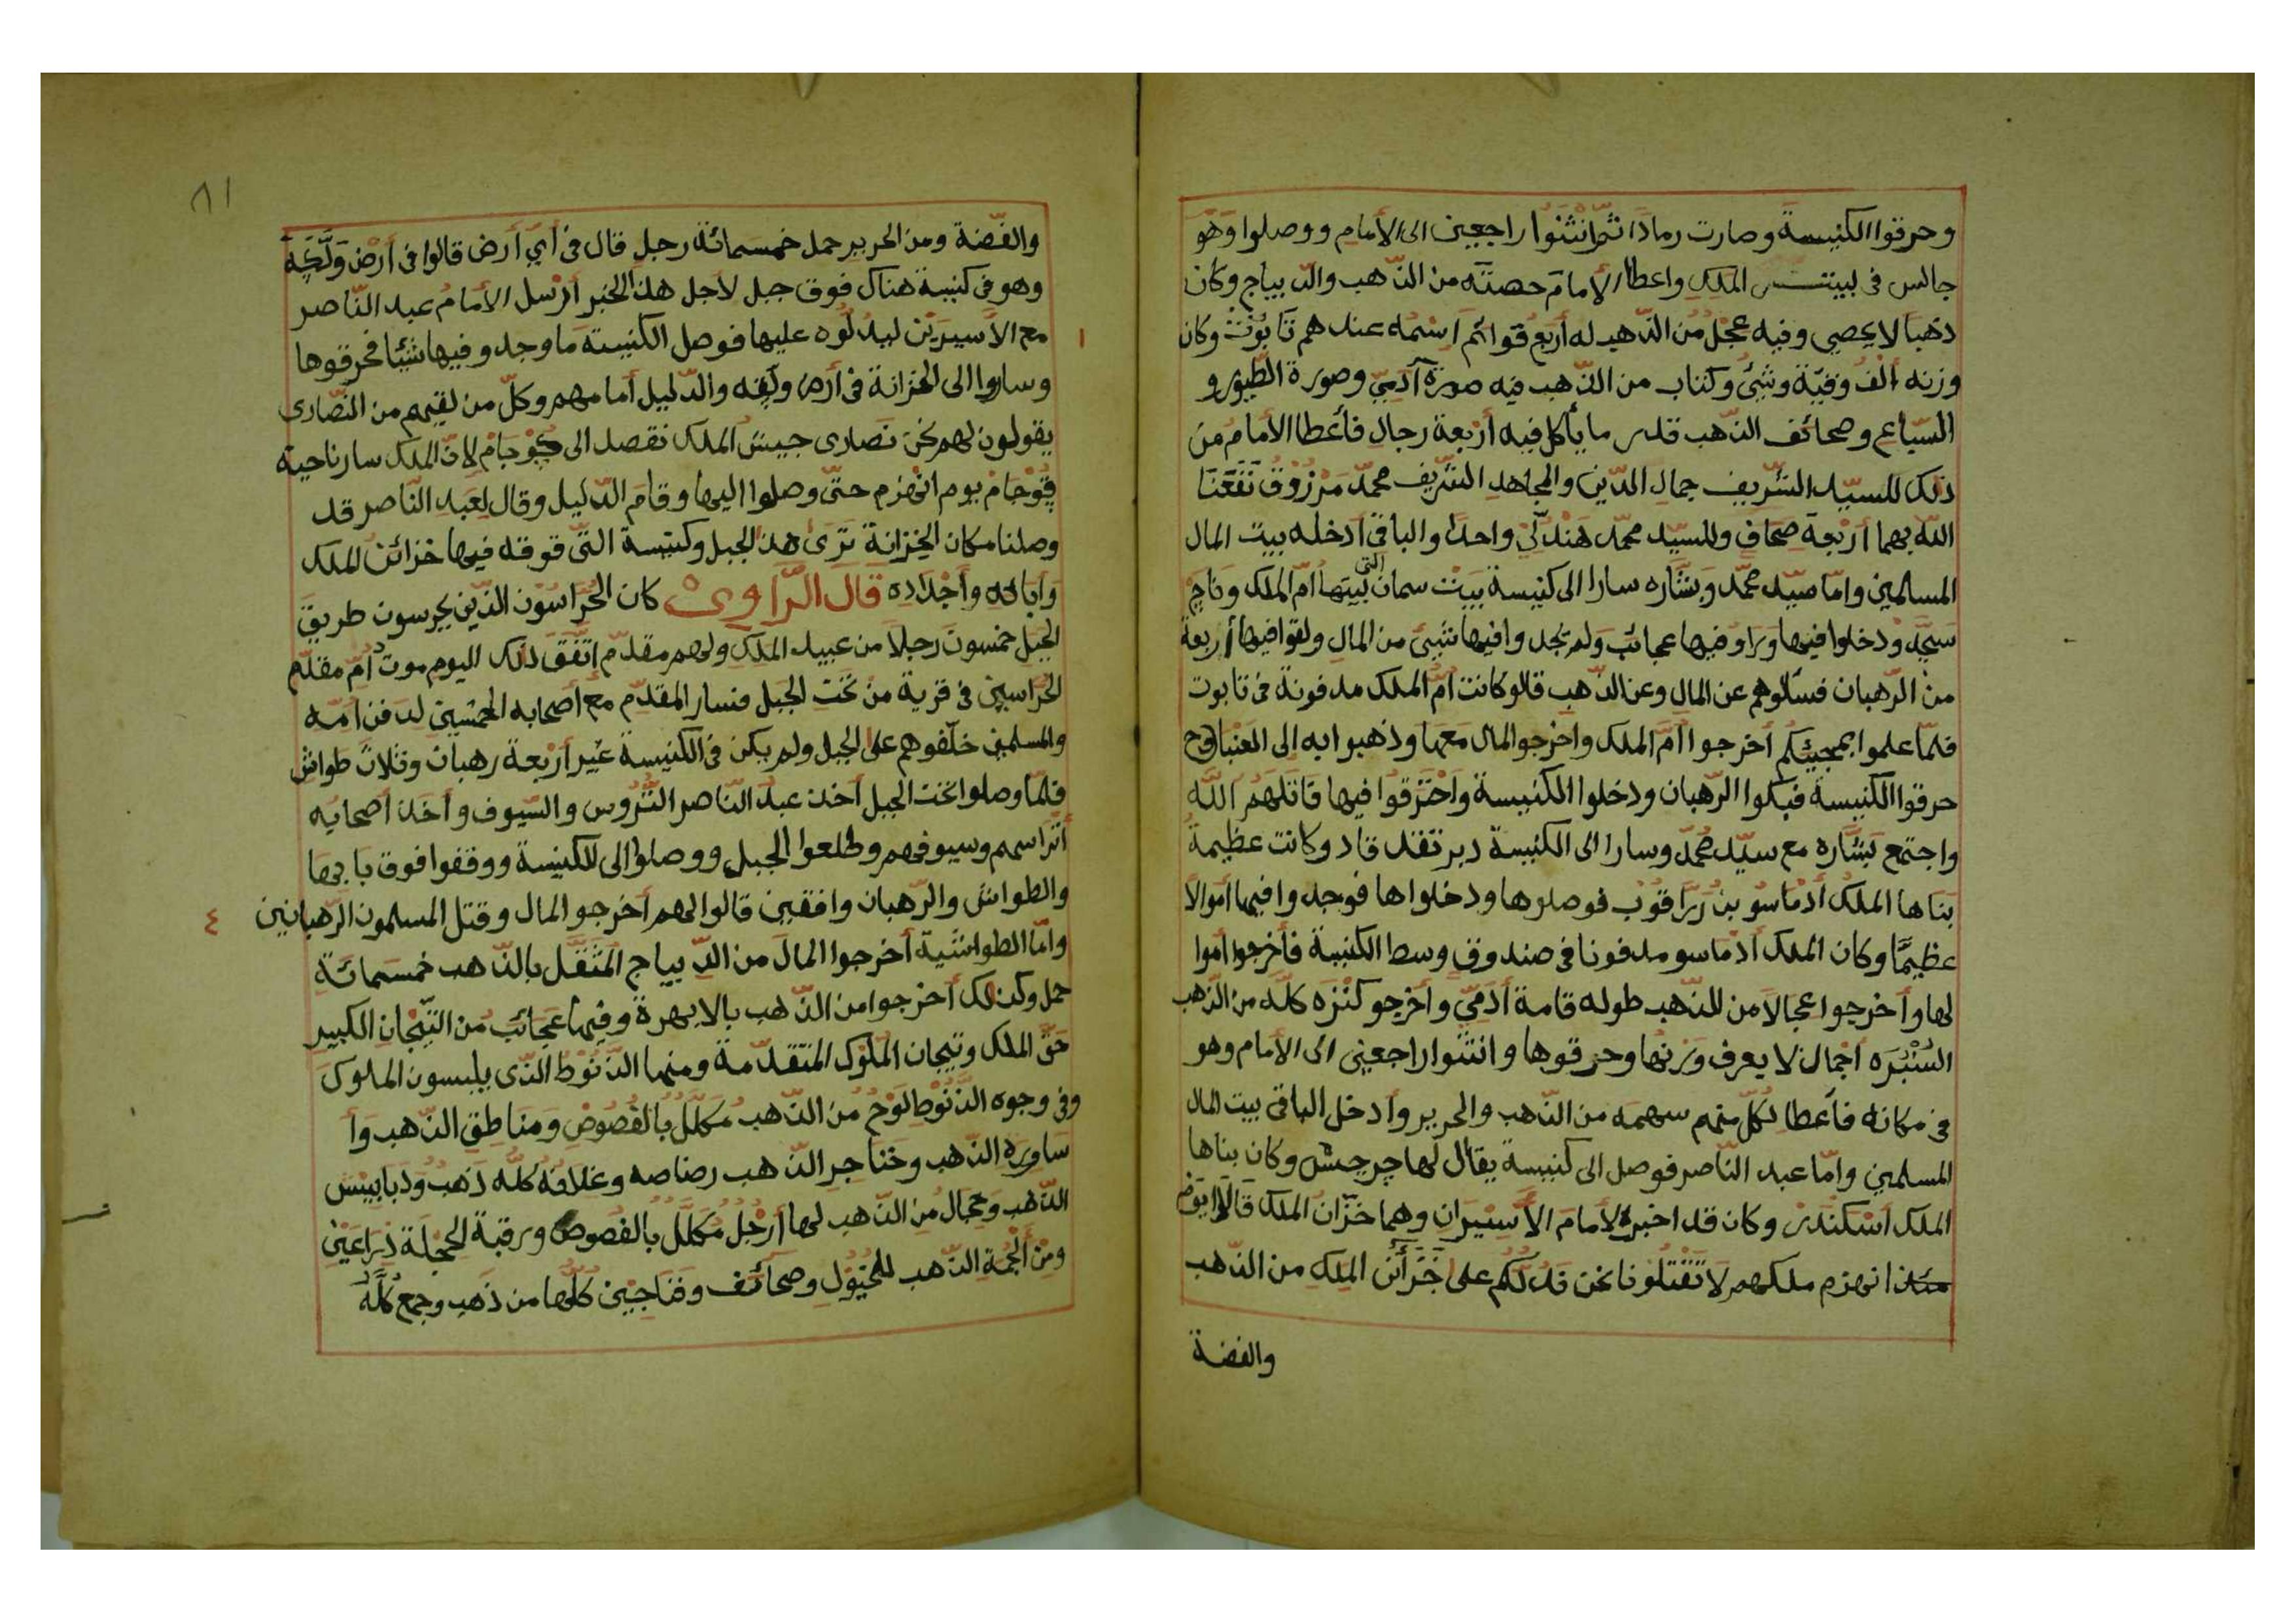 وحرقوا الكنيسة وصارت رمادًا ثمّ انثنوا راجعين الى الأمام ووصلوا وهو
جالس في لبيت الملك واعطا الأمام حصته من الذّهب والدّيباج وكان
ذهبا لا يحصي وفيه عجل من الذّهب له أربع قوائم اسمه عندهم تابوت وكان
وزنه ألف وقيّة وشئ وكتاب من الذّهب فيه صورة آدميّ وصورة الطّيور و
السّباع وصحائف الذّهب قدر ما يأكل فيه أربعة رجال فأعطا الأمام من
ذلك للسيّد الشّريف جمال الدّين والمجاهد الشّريف محمّد مرزوق نفعنا
اللّه بهما أربعة صحاف وللسيّد محمّد هندليّ واحدا والباقي أدخله بيت المال
المسلمين وامّا سيّد محمّد وبشّاره سارا الى كنيسة بيت سمان التي بيتها امّ الملك وناج
سجد ودخلوا فيها وراو فيها عجائب ولم تجدوا فيها شيئ من المال ولقوا فيها أربعة
من الرّهبان فسئلوهم عن المال وعن الذّهب قالو كانت امّ الملك مدفونة في تابوت
فلمّا علموا بمجيئكم أخرجوا امّ الملك واخرجوا المال معها وذهبوا به الى العنبا وح
حرقوا الكنيسة فبكوا الرّهبان ودخلوا الكنيسة واحترقوا فيها قاتلهم اللّه
واجتمع بشّاره مع سيّد محمّد وسارا الى الكنيسة دبر تفد قاد وكانت عظيمة
بناها الملك أدماسو بن زرا قوب فوصلوها ودخلوا ها فوجدوا فيها اموالا
عظيمًا وكان الملك أدماسو مدفونا في صندوق وسط الكنيسة فأخرجوا اموا
لها وأخرجوا عجالا من للذّهب طوله قامة آدميّ وأخرجو كنزه كلّه من الذّهب
السنبره اجمال لا يعرف وزنها وحرقوها وانثنوا راجعين الى الأمام وهو
في مكانه فأعطا لكلّ منهم سهمه من الذّهب والحرير وأدخل الباقي بيت المال
المسلمين وامّا عبد النّاصر فوصل الى كنيسة يقال لها جرجيش وكان بناها
الملك اسكندر وكان قد اخبره الأمام الأسيران وهما خزّان الملك قالا يوم
انهزم ملكهم لا تقتلونا نحن ندلّكم على خزائن الملك من الذّهب
والفضة
٨١
والفضّة ومن الحرير حمل خمسمائة رجل قال في أيّ أرض قالوا في أرض ولّقه
وهو في كنيسة هناك فوق جبل لأجل هذا الخبر أرسل الأمام عبد النّاصر
مع الأسيرين ليدلّوه عليها فوصل الكنيسة ما وجدو فيها شيئا فحرقوها
١
وساروا الى الخزانة في أرض ولقه والدّليل أمامهم وكلّ من لقيهم من النّصارى
يقولون لهم نحن نصارى جيش الملك نقصد الى جوجام لانّ الملك سار ناحية
قوجام يوم انهزم حتّى وصلوا اليها وقام الدّليل وقال لعبد النّاصر قد
وصلنا مكان الخزانة ترى هذا الجبل وكنيسة التّي فوقه فيها خزائن الملك
وآبائه وأجداده قال الرّاوي كان الحرّاسون الذّين يحرسون طريق
الجبل خمسون رجلا من عبيد الملك ولهم مقدّم إتّفق ذلك اليوم موت أمّ مقدّم
الحرّاسين في قرية من تحت الجبل فسار المقدّم مع أصحابه الخمسين لدفن امّه
والمسلمين خلّفوهم على الجبل ولم يكن في الكنيسة غير أربعة رهبان وثلاث طواش
فلمّا وصلوا تحت الجبل أخذ عبد النّاصر التّروس والسّيوف وأخذ أصحابه
أتراسهم وسيوفهم وطلعوا الجبل ووصلوا الى للكنيسة ووقفوا فوق بابها
والطواش والرّهبان واقفين قالوا لهم أخرجو المال وقتل المسلمون الرّهبانين
٤
وامّا الطواشّية أخرجوا المال من الدّيباج المثقّل بالذّهب خمسمائة
حمل وكذلك أخرجوا من الذّهب بالابهرة وفيها عجائب من التّيجان الكبير
حقّ الملك وتيجان الملوك المتقدّمة ومنها الدّنوط الذّى يلبسون الملوك
وفي وجوه الدّنوط لوح من الذّهب مكلّل بالفصوص ومناطق الذّهب وأ
ساوره الذّهب وخناجر الذّهب رصاصه وغلافه كلّه ذهب ودبابيس
الذّهب وعجال من الذّهب لها أرجل مكلّل بالفصوص ورقبة العجلة ذراعين
ومن ألجمة الذّهب للخيول وصحائف وفناجين كلّها من ذهب وجمع كلّه